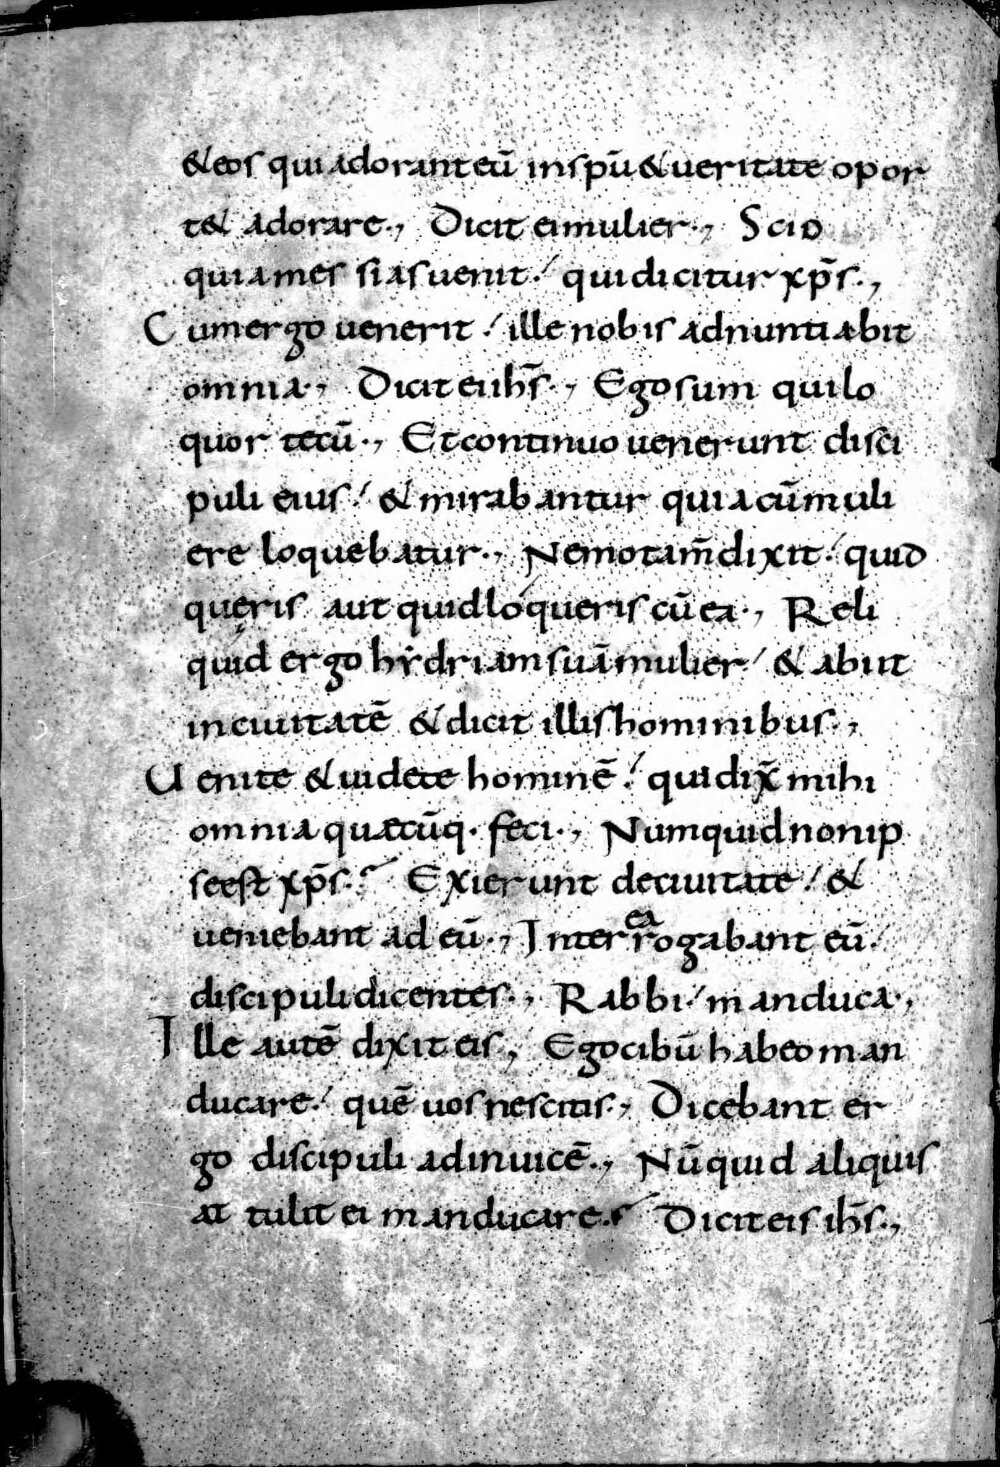 &eos qui adorant eū in spū & ueritate opor
t& adorare., Dicit ei mulier., Scio
quia messias uenit./ qui dicitur xp̄s.,
Cum ergo uenerit./ ille nobis adnuntiabit
omnia., Dicit ei ih̄s., Ego sum qui lo
quor tecū., Et continuo uenerunt disci
puli eius./ & mirabantur quia cū muli
ere loquebatur., Nemo tam̄ dixit./ quid
quęris aut quid loqueris cū ea., Reli
quid ergo hẏdriam suā mulier./ & abiit
in ciuitatē & dicit illis hominibus.,
Uenite & uidete hominē./ qui dix̄ mihi
omnia quæcūq· feci., Numquid non ip
se est xp̄s.? Exierunt de ciuitate./ &
ueniebant ad eū., Interea rogabant eū
discipuli dicentes., Rabbi./ manduca.,
Ille autē dixit eis., Ego cibū habeo man
ducare./ quē uos nescitis., Dicebant er
go discipuli adinuicē., Nūquid aliquis
attulit ei manducare.? Dicit eis ih̄s.,